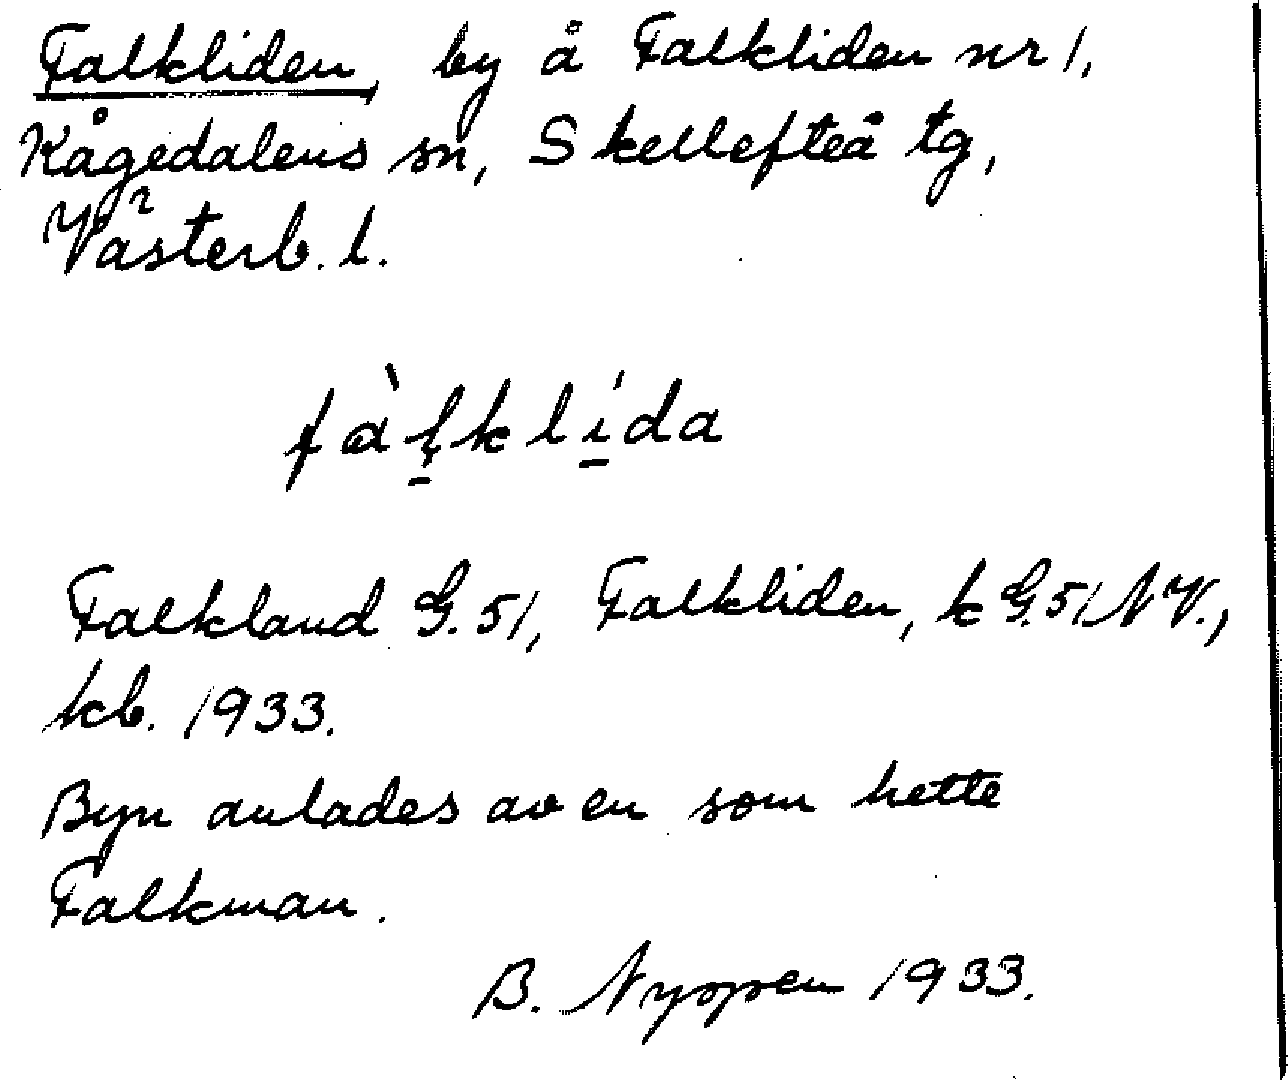 Falkliden, by å Falkliden nr 1,
Kågedalens sn, Skellefteå tg,
Västerb. l.
fàl̥klída
Falkland G. 51, Falkliden, k G. 51 NV.,
kb. 1933.
Byn anlades av en som hette
Falkman.
B. Nyppen 1933.